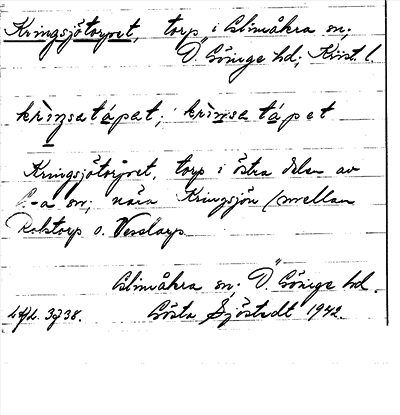 Kringsjötorpet, torp i Glimåkra sn;
Ö. Göinge hd; Krist. l.
krìŋsatápat; krìŋsetápet
Kringsjötorpet, torp i östra delen av
G-a sn; nära Kringsjön (mellan
o. Verslarp
Glimåkra sn; Ö. Göinge hd.
Gösta Sjöstedt 1942.